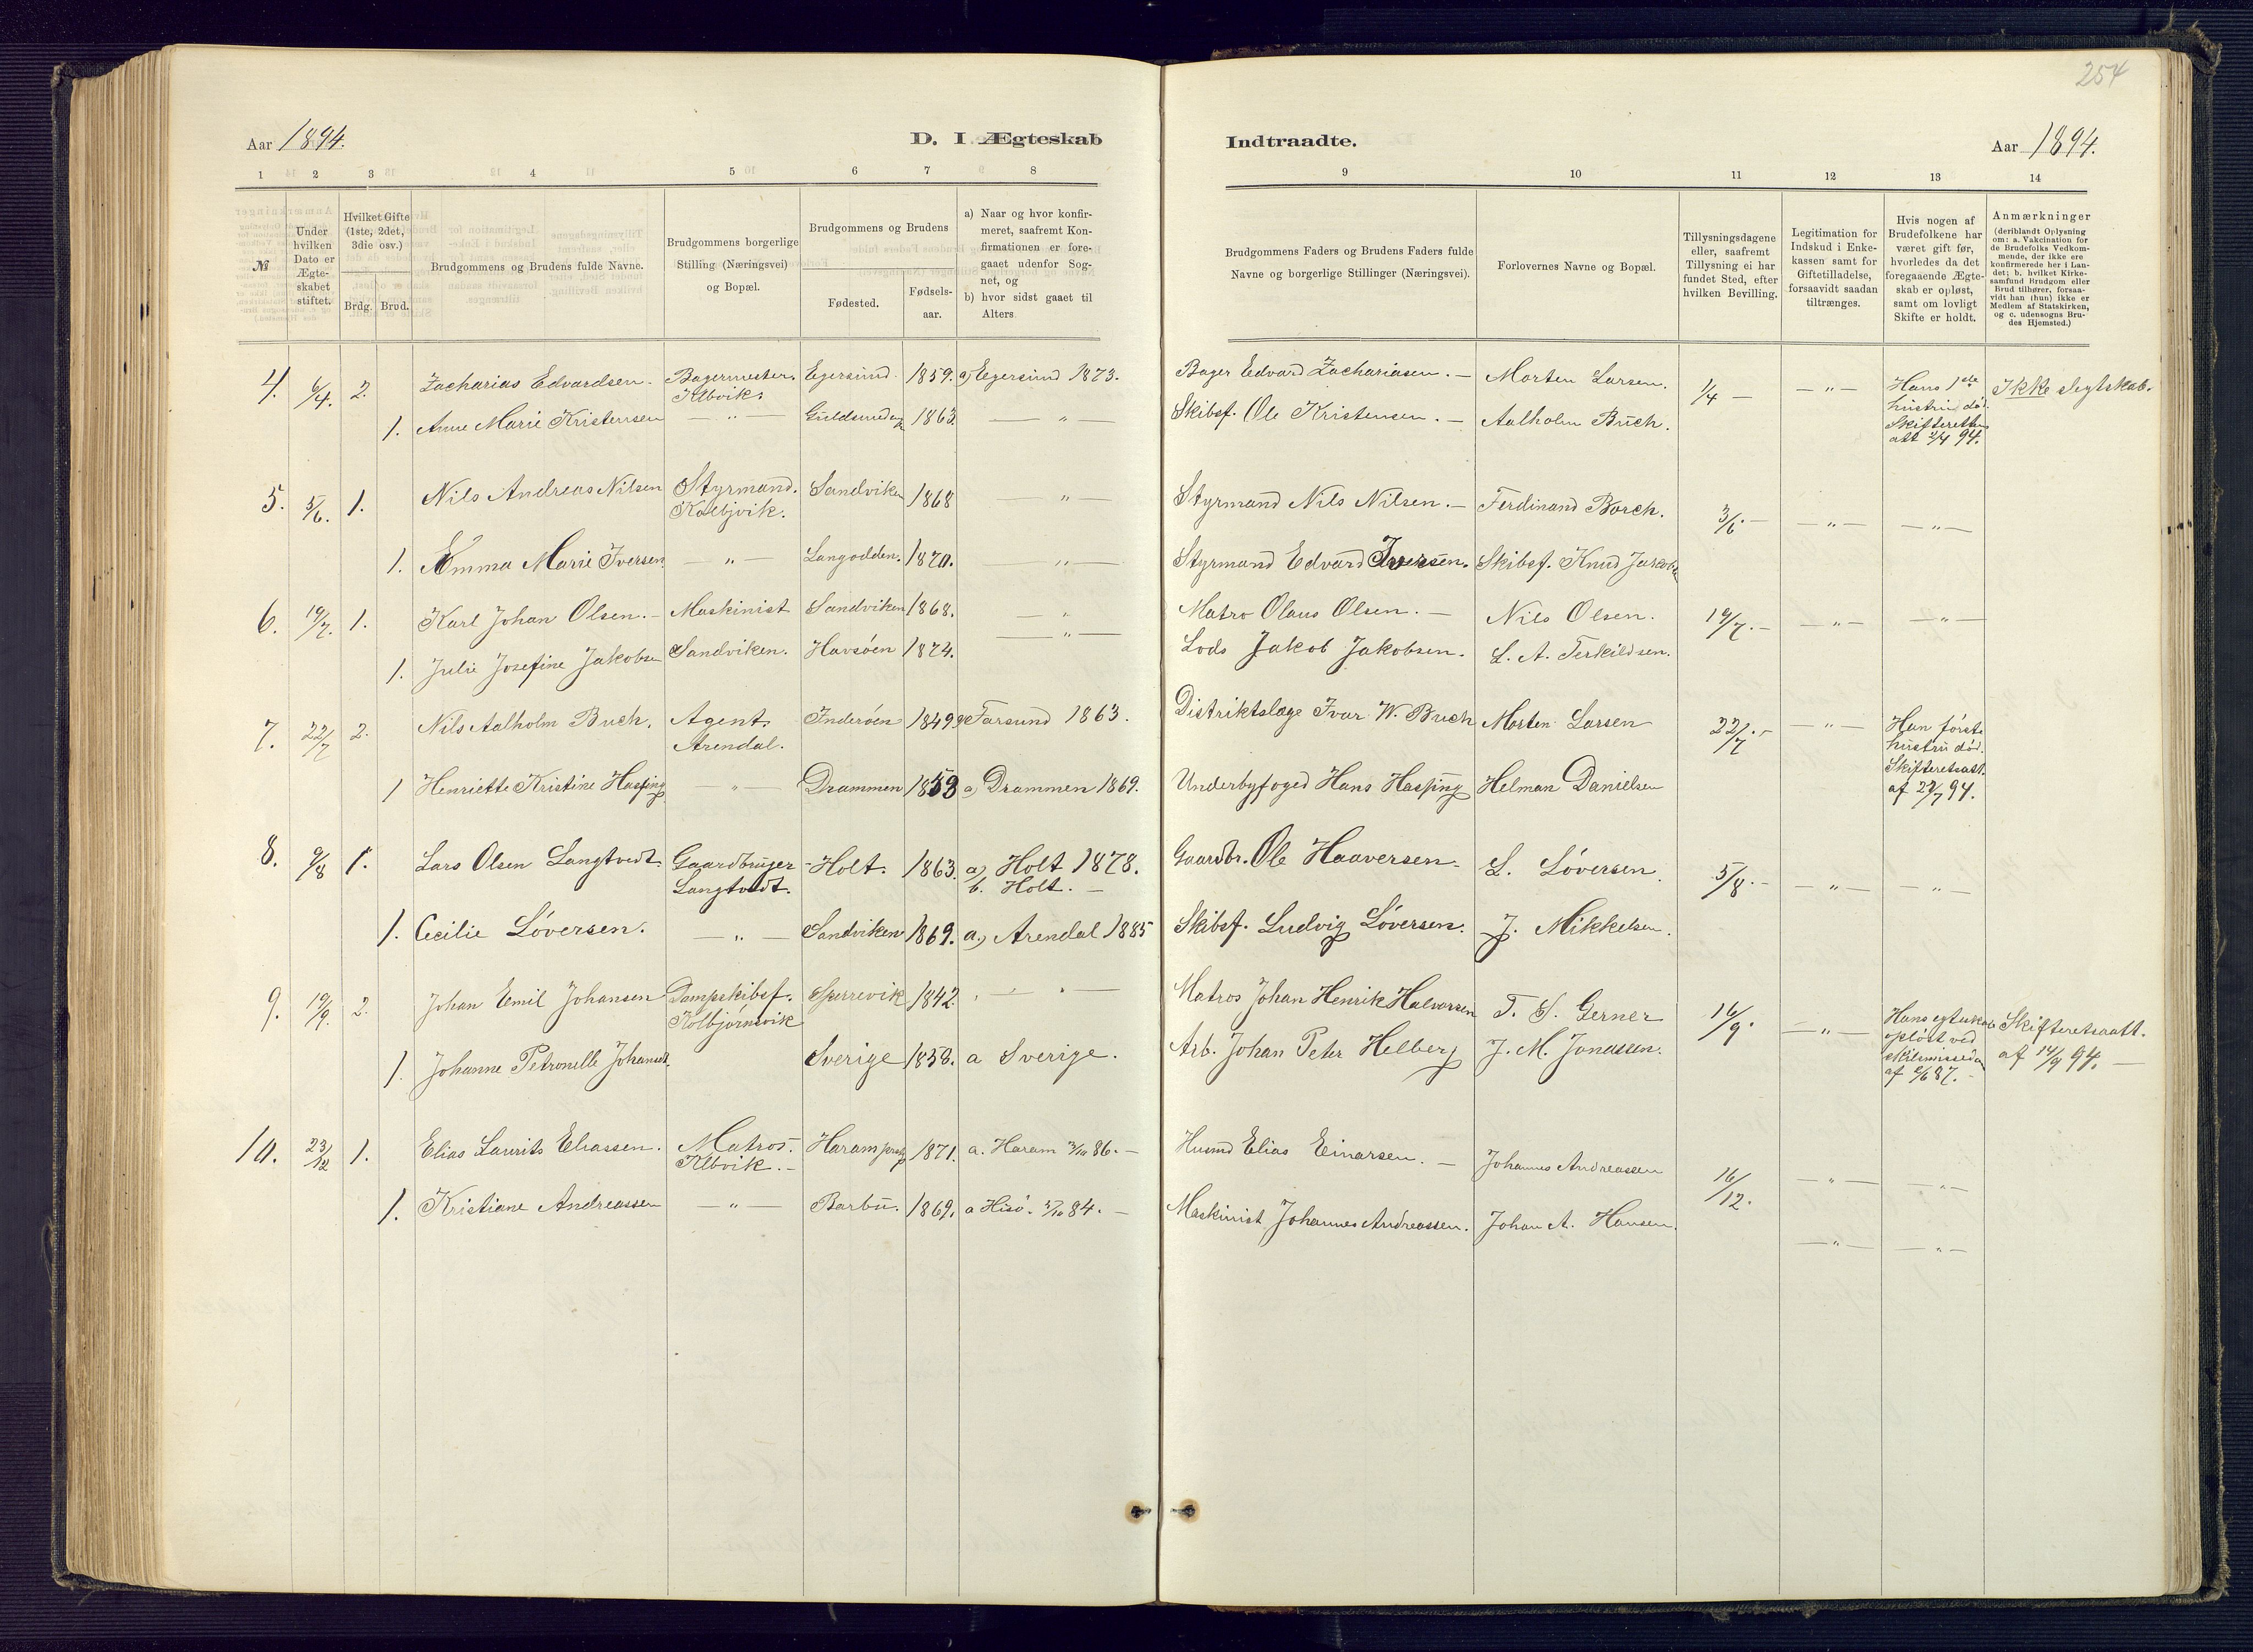 254
Aar 1894.
D. I Ægteskab
Indtraadte.
Aar 1894.
1 2 3 4 5 6 7 8 9 10 11 12 13 14
№
Under hvilken Dato er Ægteskabet stiftet.
Hvilket Gifte (1ste, 2det, 3die osv.)
Brdg. Brud.
Brudgommens og Brudens fulde Navne.
Brudgommens borgerlige Stilling (Næringsvei) og Bopæl.
Brudgommens og Brudens
Fødested.
Fødselsaar.
a) Naar og hvor konfirmeret, saafremt Konfirmationen er foregaaet udenfor Sognet, og
b) hvor sidst gaaet til Alters
Brudgommens Faders og Brudens Faders fulde Navne og borgerlige Stillinger (Næringsvei).
Forlovernes Navne og Bopæl.
Tillysningsdagene eller, saafremt Tillysning ei har fundet Sted, efter hvilken Bevilling.
Legitimation for Indskud i Enkekassen samt for Giftetilladelse, forsaavidt saadan tiltrænges.
Hvis nogen af Brudefolkene har været gift før, hvorledes da det foregaaende Ægteskab er opløst, samt om lovligt Skifte er holdt.
Anmærkninger (deriblandt Oplysning om: a. Vakcination for de Brudefolks Vedkommende, der ikke ere konfirmerede her i Landet; b. hvilket Kirkesamfund Brudgom eller Brud tilhører, forsaavidt han (hun) ikke er Medlem af Statskirken, og c. udensogns Brudes Hjemsted.)
4. 6/4. 2. Zacharias Edvardsen. Bagermester. Egersund. 1859. a) Egersund 1873. Bager Edvard Zachariasen. — Morten Larsen. 1/4 — — „ — Hans 1ste Ikke slegtskab.
Klbvik. hustru død.
1. Anne Marie Kristensen — „ — 1863. — „ — Skibsf. Ole Kristensen. — Aalholm Buch. Skifteretten
att 2/4 94.
5. 5/6. 1. Nils Andreas Nilsen Styrmand. Sandviken 1868 — „ — Styrmand Nils Nilsen. — Ferdinand Borch. 3/6. — — „ — — „ —
Kolbjvik.
1. Emma Marie Iversen — „ — Langodden. 1870. — „ — Styrmand Edvard Iversen. Skibsf. Knud Jakobsen
6. 19/7. 1. Karl Johan Olsen. — Maskinist Sandviken 1868. — „ — Matro Olaus Olsen. — Nils Olsen. 19/7. — — „ — — „ —
1. Julie Josefine Jakobsen Sandviken. Havsøen 1874. — „ — Lods Jakob Jakobsen. L. A. Terkildsen.
7. 22/7 2. Nils Aalholm Buch. Agent. Inderøen 1849 a Farsund 1863. Distriktslæge Ivar W. Buch Morten Larsen 22/7. — — „ — Han første
Arendal. hustru død.
1 Henriette Kristine Hasping — „ — Drammen 1853 a) Drammen 1869. Underbyfoged Hans Hasping Helman Danielsen Skifteretsatt.
af 22/7 94.
8. 9/8 1. Lars Olsen Langtvedt Gaardbruger Holt. 1863. a) Holt 1878. Gaardbr. Ole Haaversen. L. Løversen. 5/8. — — „ — — „ —
Langtvedt. b. Holt. —
1. Cecilie Løversen. — „ — Sandviken 1869. a) Arendal 1885 Skibsf. Ludvig Løversen. J. Mikkelsen.
9. 19/9. 2. Johan Emil Johansen Dampskibsf. Sperrevik 1842. — „ — Matros Johan Henrik Halvorsen T. S. Gerner 16/9. — „ — Hans egteskab Skifteretsatt.
Kolbjørnsvik opløst ved af 14/9 94. —
1. Johanne Petronelle Johansdt. Sverige 1858. a Sverige. Arb. Johan Peter Helberg J. M. Jonassen. Skilsmisse
10. 23/12 1. Elias Laurits Eliassen. Matros. Haram 1871. a. Haram 3/10 86. — Husmd Elias Einarsen. — Johannes Andreassen 16/12. — „ — — „ —
Klbvik. —
1. Kristiane Andreassen — „ — Barbu. 1869. a Hisø. 5/10 84. — Maskinist Johannes Andreassen. Johan A. Hansen. — „ — — „ —